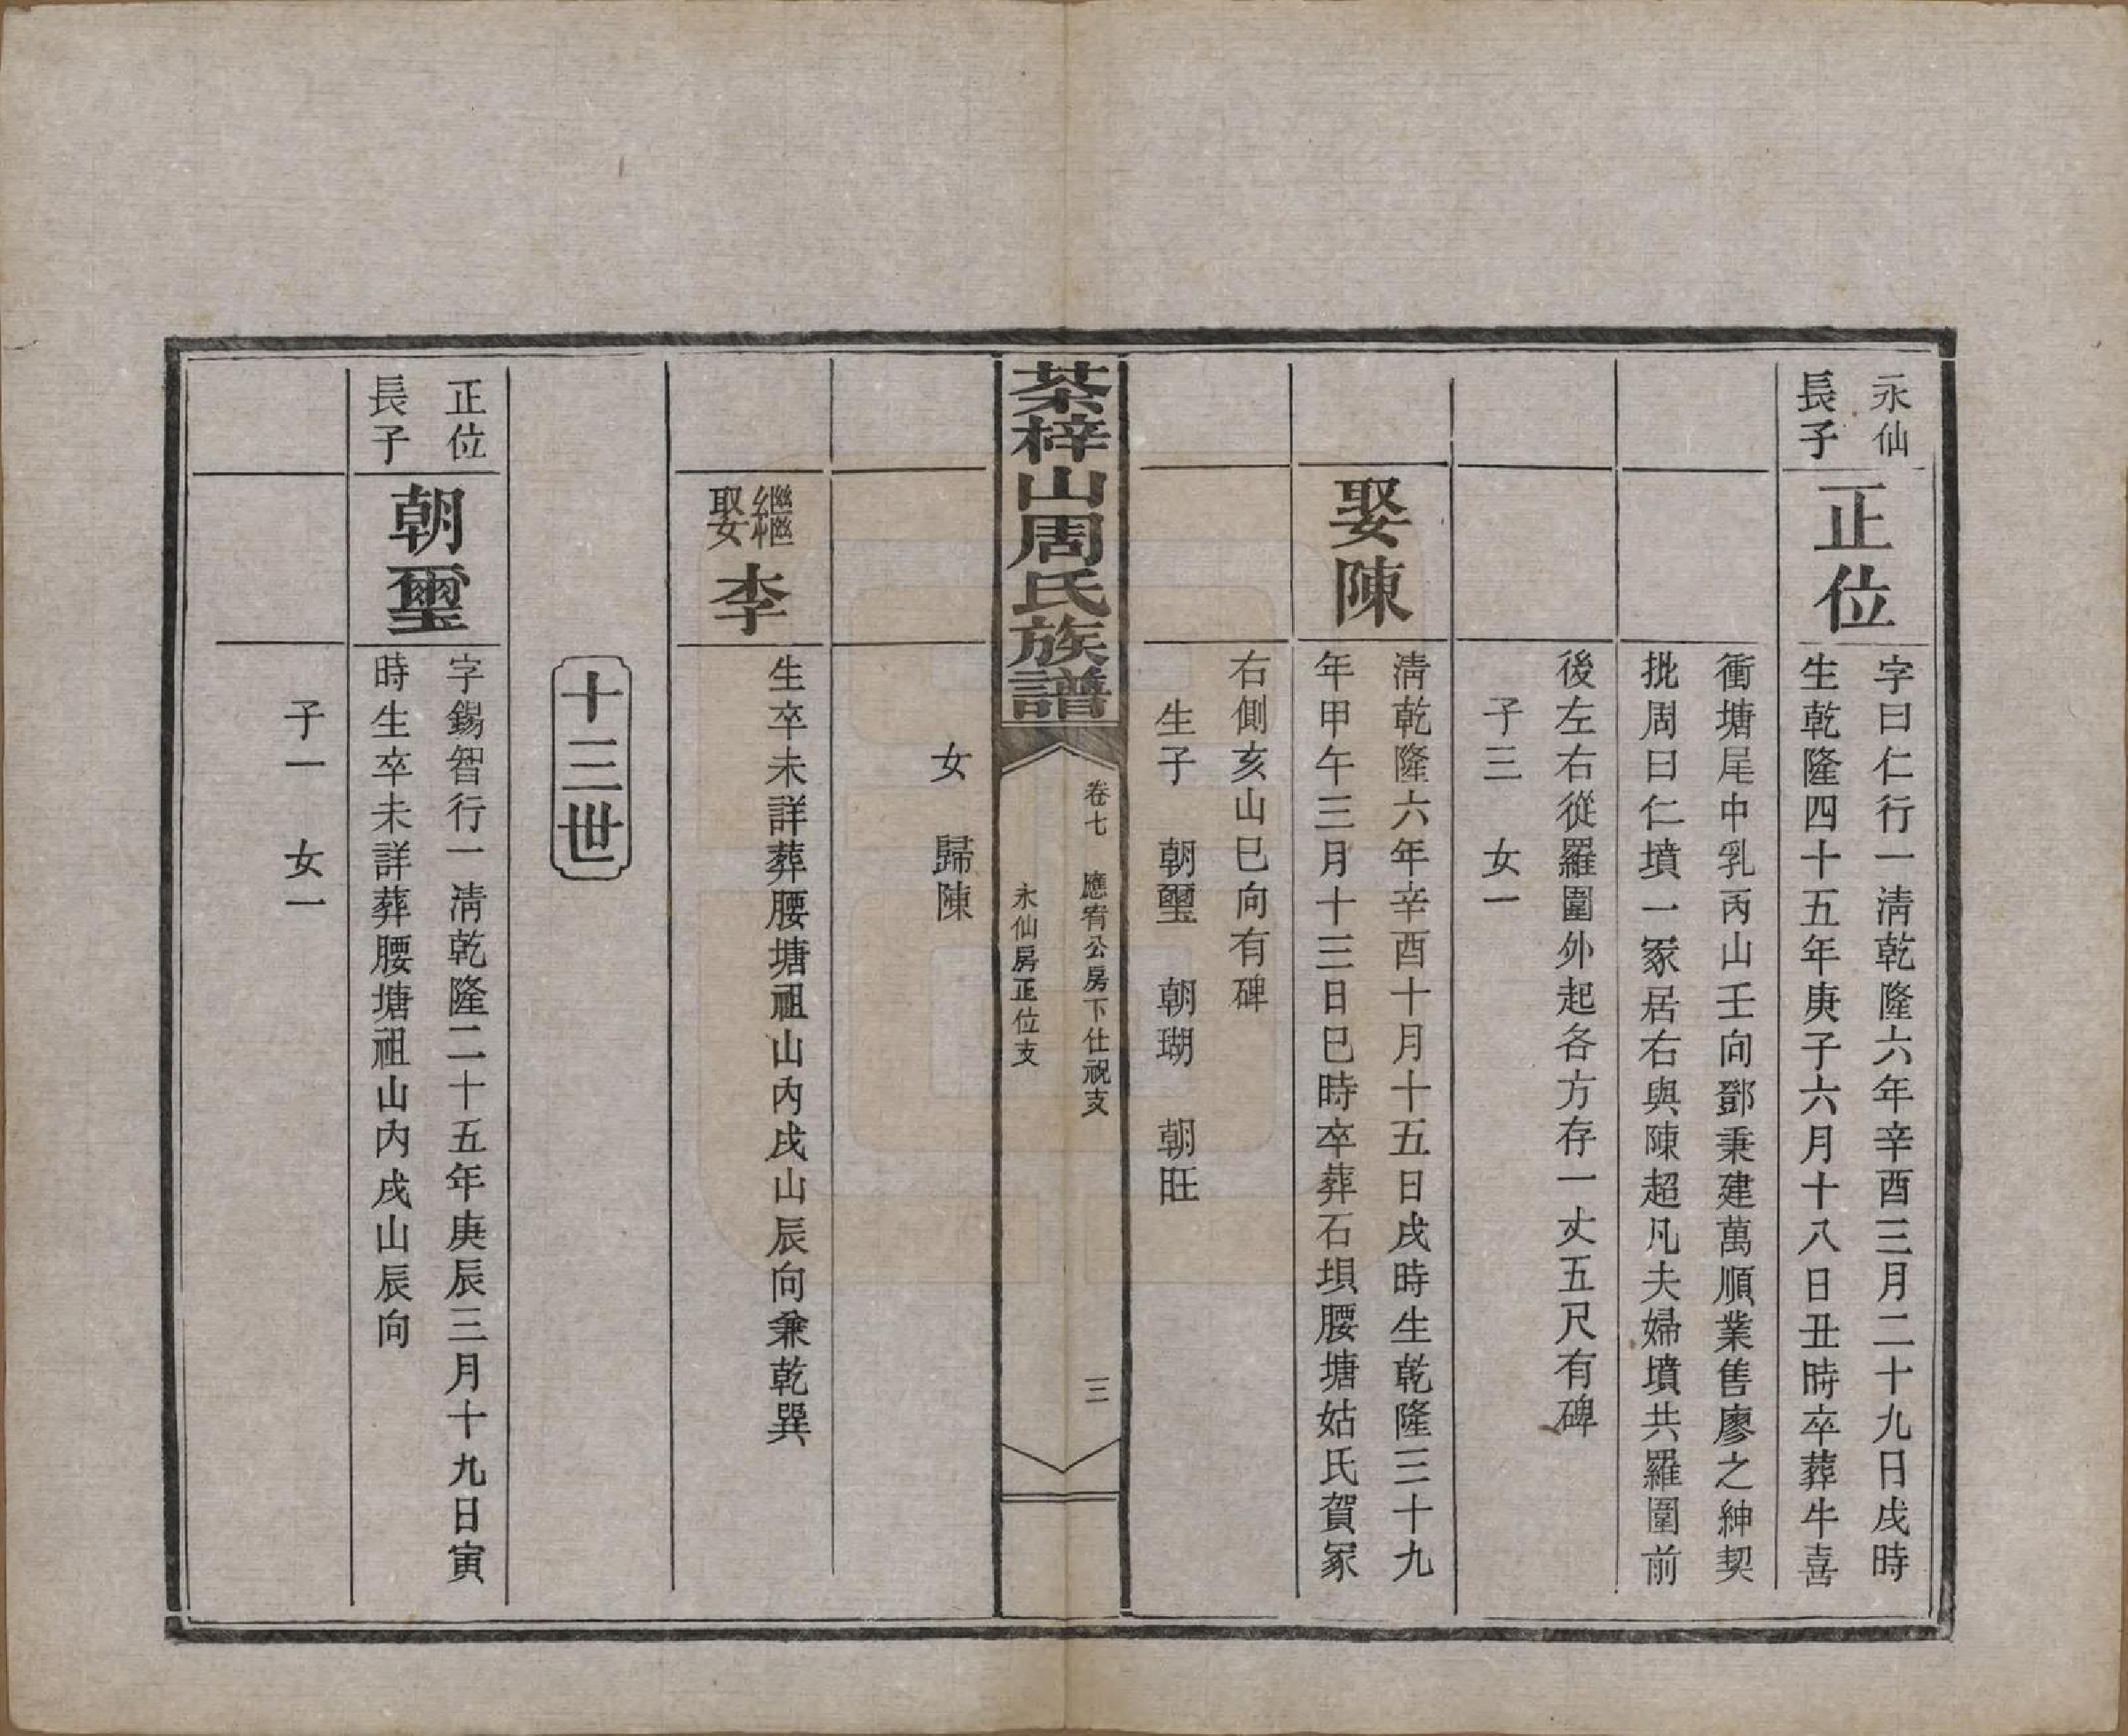 永仙
長子
正位
字曰仁行一淸乾隆六年辛酉三月二十九日戌時
生乾隆四十五年庚子六月十八日丑時卒葬牛喜
衝塘尾中乳丙山壬向鄧秉建萬順業售廖之紳契
批周曰仁墳一冢居右與陳超凡夫婦墳共羅圍前
後左右從羅圍外起各方存一丈五尺有碑
子三　女一
娶陳
淸乾隆六年辛酉十月十五日戌時生乾隆三十九
年甲午三月十三日巳時卒葬石垻腰塘姑氏賀冢
右側亥山巳向有碑
生子　朝璽　朝瑚　朝旺
茶梓山周氏族譜
卷七　應宥公房下仕祝支
永仙房正位支
三
女　歸陳
繼娶李
生卒未詳葬腰塘祖山內戌山辰向兼乾巽
十三世
正位
長子
朝璽
字錫智行一淸乾隆二十五年庚辰三月十九日寅
時生卒未詳葬腰塘祖山內戌山辰向
子一　女一